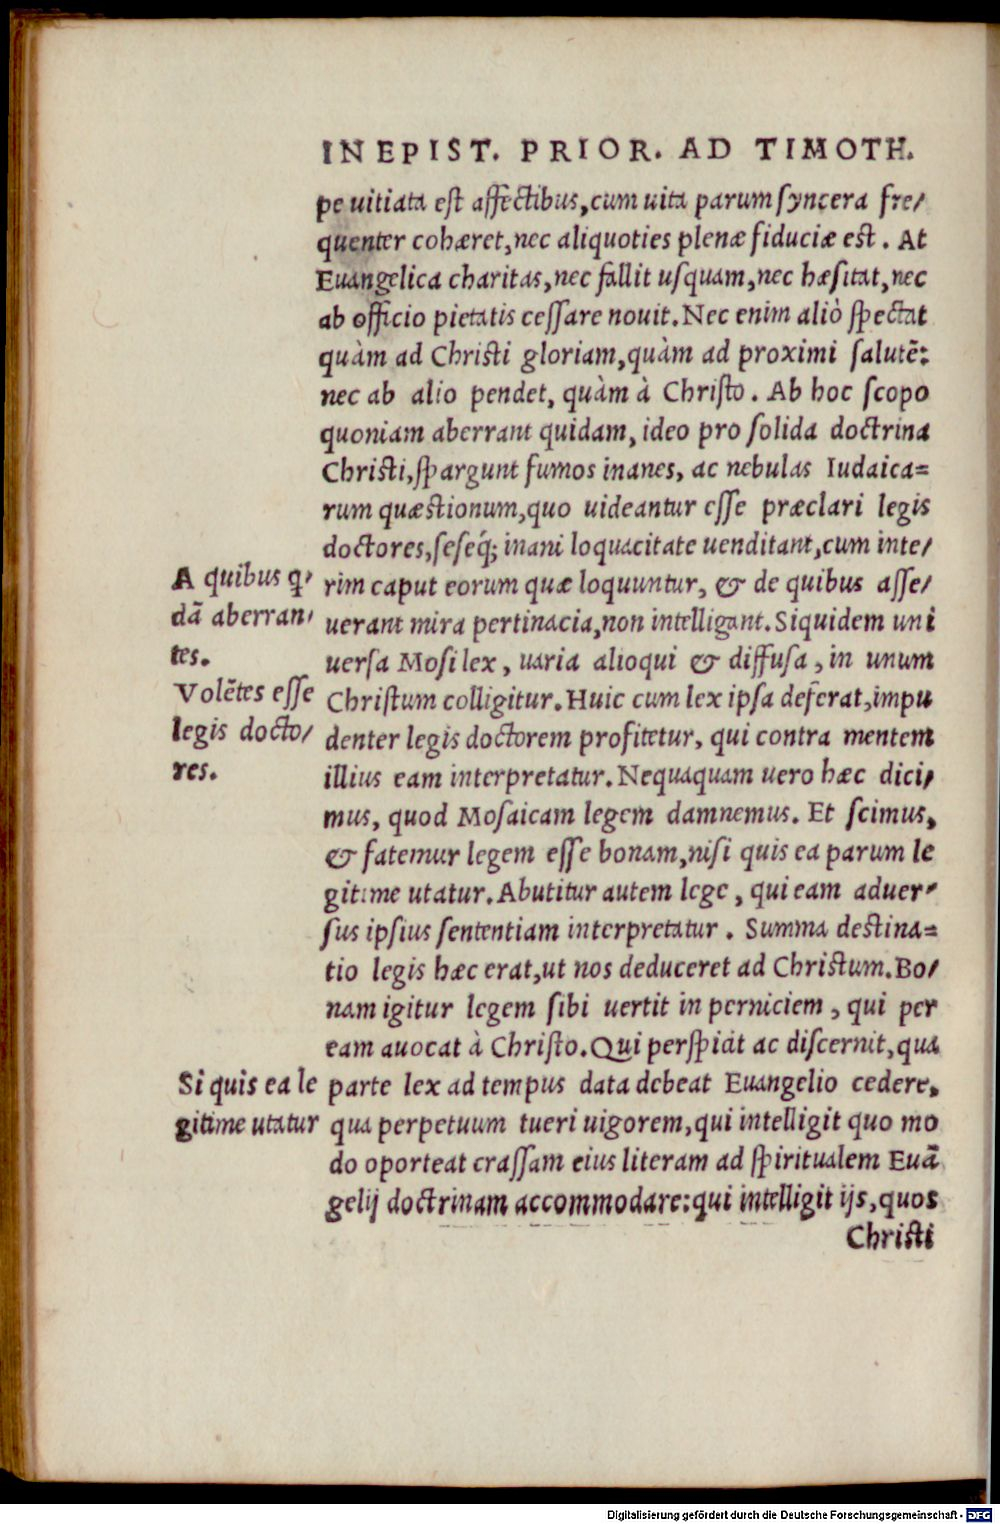 IN EPIST. PRIOR. AD TIMOTH.
pe uitiata est affectibus, cum uita parum syncera fre/
quenter cohæret, nec aliquoties plenæ fiduciæ est. At
Euangelica charitas, nec fallit usquam, nec hæsitat, nec
ab officio pietatis cessare nouit. Nec enim aliò spectat
quàm ad Christi gloriam, quàm ad proximi salutē:
nec ab alio pendet, quàm à Christo. Ab hoc scopo
quoniam aberrant quidam, ideo pro solida doctrina
Christi, spargunt fumos inanes, ac nebulas Iudaica=
rum quæstionum, quo uideantur esse præclari legis
doctores, seseq́; inani loquacitate uenditant, cum inte/
A quibus q/
dā aberran/
tes.
rim caput eorum quæ loquuntur, & de quibus asse/
uerant mira pertinacia, non intelligant. Siquidem uni
uersa Mosi lex, uaria alioqui & diffusa, in unum
Volētes esse
legis docto/
res.
Christum colligitur. Huic cum lex ipsa deferat, impu
denter legis doctorem profitetur, qui contra mentem
illius eam interpretatur. Nequaquam uero hæc dici/
mus, quod Mosaicam legem damnemus. Et scimus,
& fatemur legem esse bonam, nisi quis ea parum le
gitime utatur. Abutitur autem lege, qui eam aduer/
sus ipsius sententiam interpretatur. Summa destina=
tio legis hæc erat, ut nos deduceret ad Christum. Bo/
nam igitur legem sibi uertit in perniciem, qui per
eam auocat à Christo. Qui perspicit ac discernit, qua
Si quis ea le
gitime utatur
parte lex ad tempus data debeat Euangelio cedere,
qua perpetuum tueri uigorem, qui intelligit quo mo
do oporteat crassam eius literam ad spiritualem Euā
gelij doctrinam accommodare: qui intelligit ijs, quos
Christi
Digitalisierung gefördert durch die Deutsche Forschungsgemeinschaft - DFG